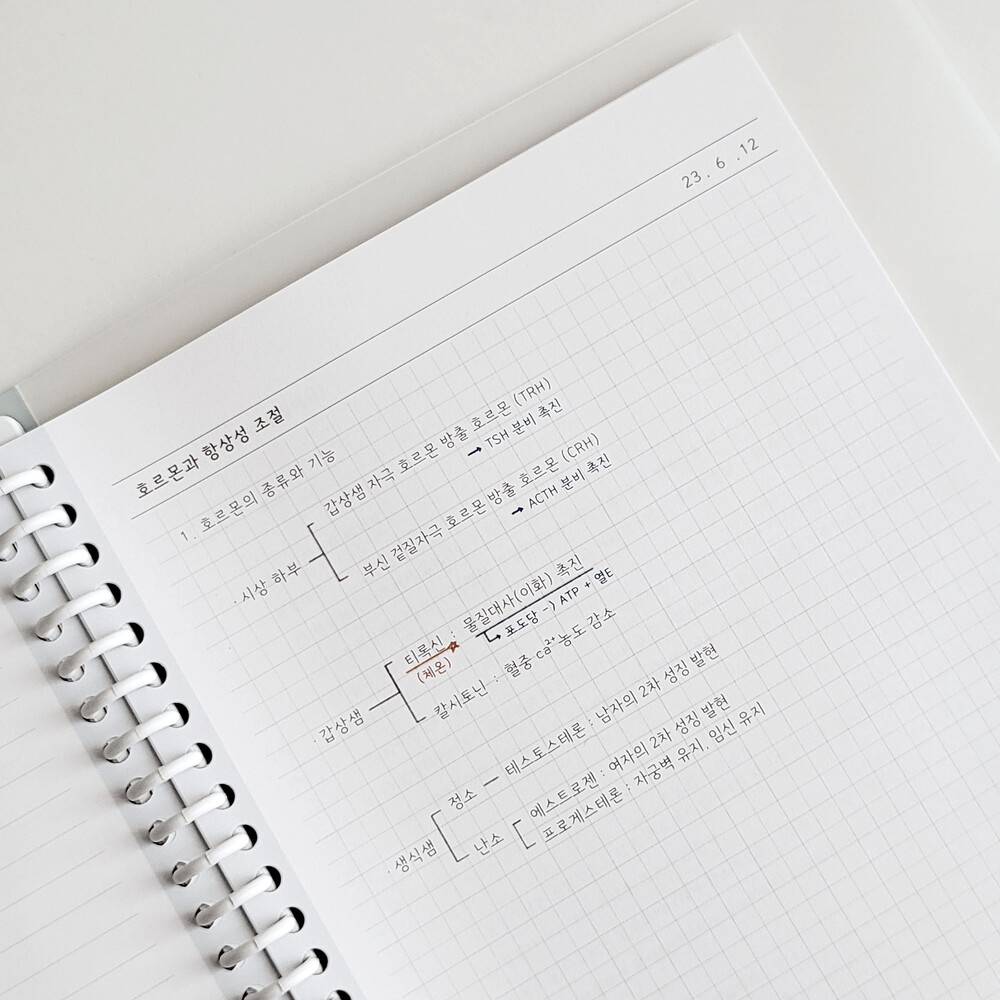 23. 6 .12
호르몬과 항상성 조절
1. 호르몬의 종류와 기능
· 시상 하부
갑상샘 자극 호르몬 방출 호르몬 (TRH)
→ TSH 분비 촉진
부신 겉질자극 호르몬 방출 호르몬 (CRH)
→ ACTH 분비 촉진
· 갑상샘
티록신 : 물질대사(이화) 촉진
(체온)
포도당 -) ATP + 열E
칼시토닌 : 혈중 ca²⁺농도 감소
· 생식샘
정소 — 테스토스테론 : 남자의 2차 성징 발현
난소
에스트로젠 : 여자의 2차 성징 발현
프로게스테론 : 자궁벽 유지, 임신 유지